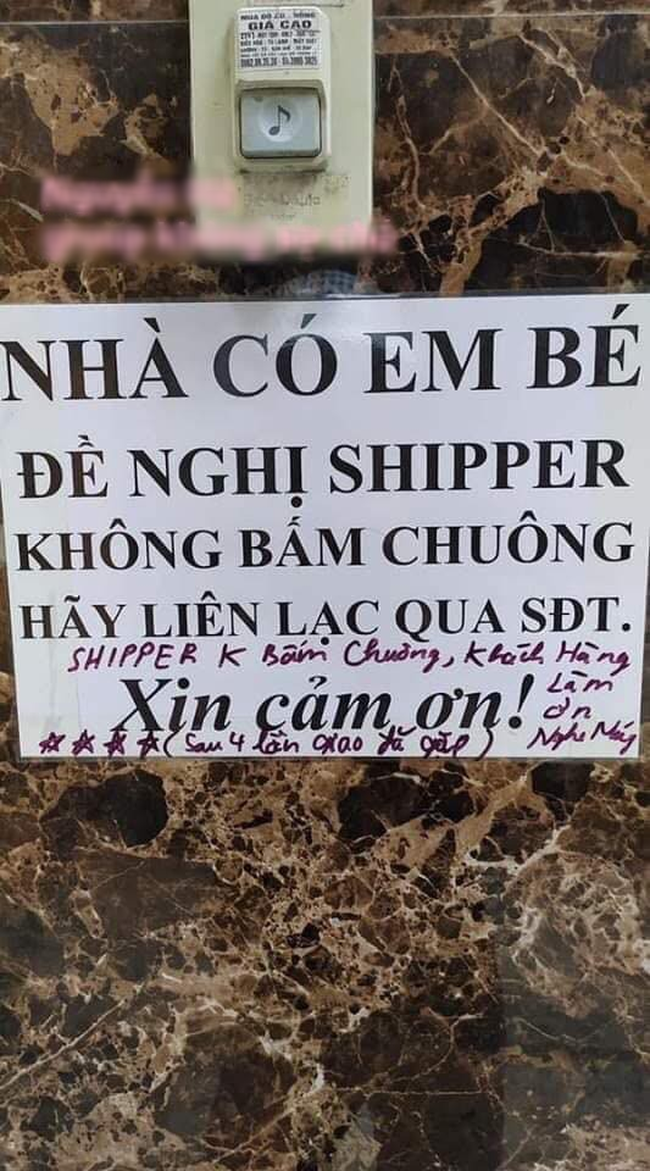 MUA ĐỒ CŨ - HỎNG
GIÁ CAO
NHÀ CÓ EM BÉ
ĐỀ NGHỊ SHIPPER
KHÔNG BẤM CHUÔNG
HÃY LIÊN LẠC QUA SĐT.
SHIPPER K Bấm Chuông, Khách Hàng
Làm
ơn
Nghe Máy
Xin cảm ơn!
(Sau 4 lần giao đã gặp)